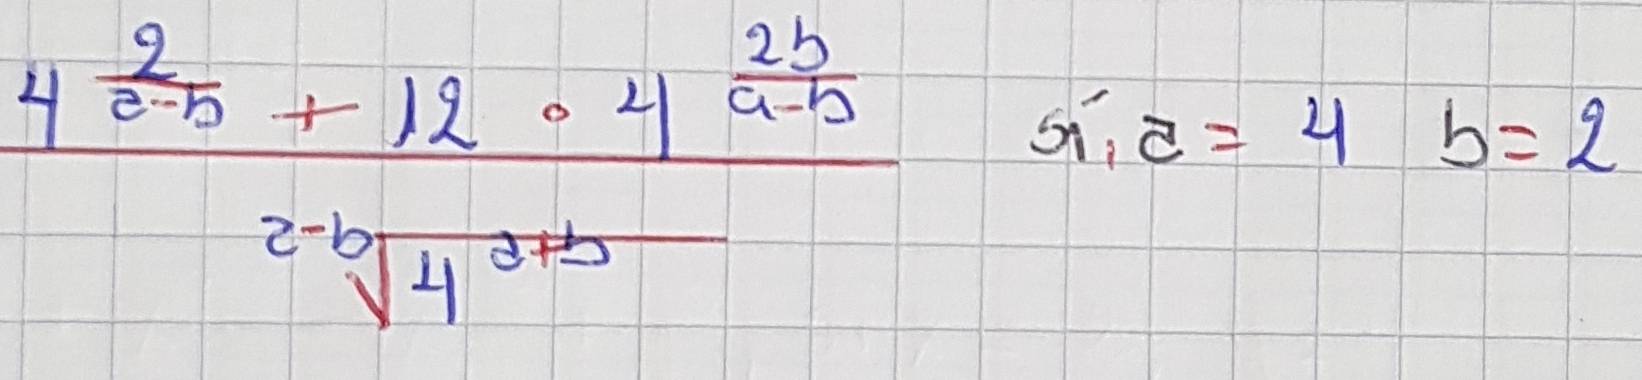 4^{\frac{2}{a-b}} + 12 \cdot 4^{\frac{2b}{a-b}} si, a = 4 b = 2
\sqrt[a-b]{4^{a+b}}